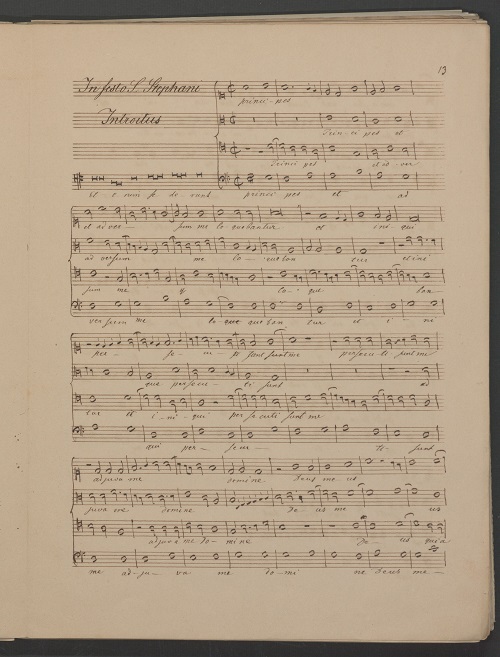 13
In festo S. Stephani
princi-pes
Introitus
princi pes et
princi pes et ad ver
Et e nim se de runt principes et ad
et adver- sum me loquebantur et ini-qui
ad versum me lo- queban tur et ini
sum me lo- que ban-
versum me lo-que queban tur et i- ni
per- se- persecuti sunt me
qui persecu- ti sunt ad
tur et i-ni-qui per se cuti sunt me
qui per- se cu- ti- sunt
adjuva me domine Deus me us
juva me domine De- us me us
adjuva me do-mine De- us qui a
me ad-ju- va me do-mi ne Deus me-